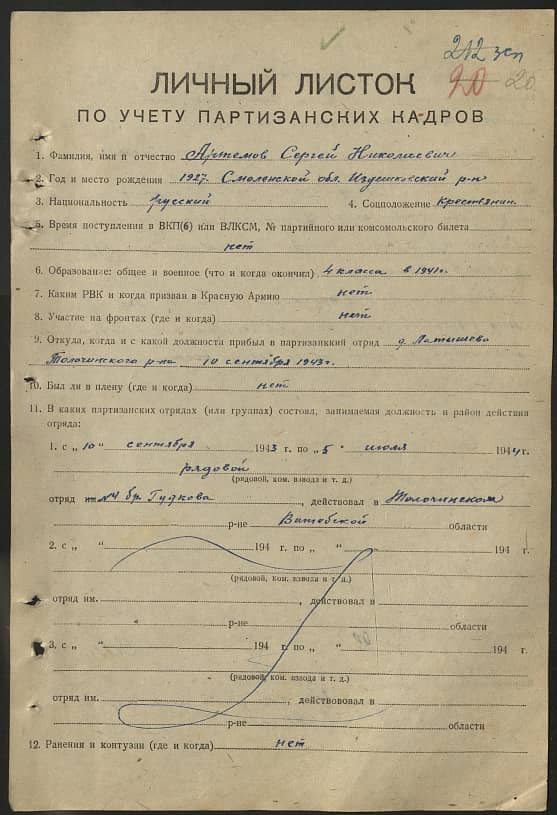 212 зсп
20 20
ЛИЧНЫЙ ЛИСТОК
ПО УЧЕТУ ПАРТИЗАНСКИХ КАДРОВ
1. Фамилия, имя и отчество Артемов Сергей Николаевич
2. Год и место рождения 1927. Смоленской обл. Издешковский р-н
3. Национальность русский 4. Соцположение Крестьянин.
5. Время поступления в ВКП(б) или ВЛКСМ, № партийного или комсомольского билета
нет
6. Образование: общее и военное (что и когда окончил) 4 класса в 1941г.
7. Каким РВК и когда призван в Красную Армию нет
8. Участие на фронтах (где и когда) нет
9. Откуда, когда и с какой должности прибыл в партизанккий отряд д. Латышево
Толочинского р-на 10 сентября 1943г.
10. Был ли в плену (где и когда) нет
11. В каких партизанских отрядах (или группах) состоял, занимаемая должность и район действия
отряда:
1. с „ 10 “ сентября 1943 г. по „ 5 “ июля 1944 г.
рядовой
(рядовой, ком. взвода и т. д.)
отряд №4 бр. Гудкова, действовал в Толочинском
р-не Витебской области
2. с „ “ 194 г. по „ “ 194 г.
(рядовой, ком. взвода и т. д.)
отряд им. , действовал в
р-не области
3. с „ “ 194 г. по „ “ 194 г.
(рядовой, ком. взвода и т. д.)
отряд им. , действововал в
р-не области
12. Ранения и контузии (где и когда) нет